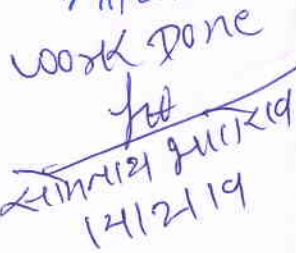 work Done
सोमनाथ भालेराव
14/2/19